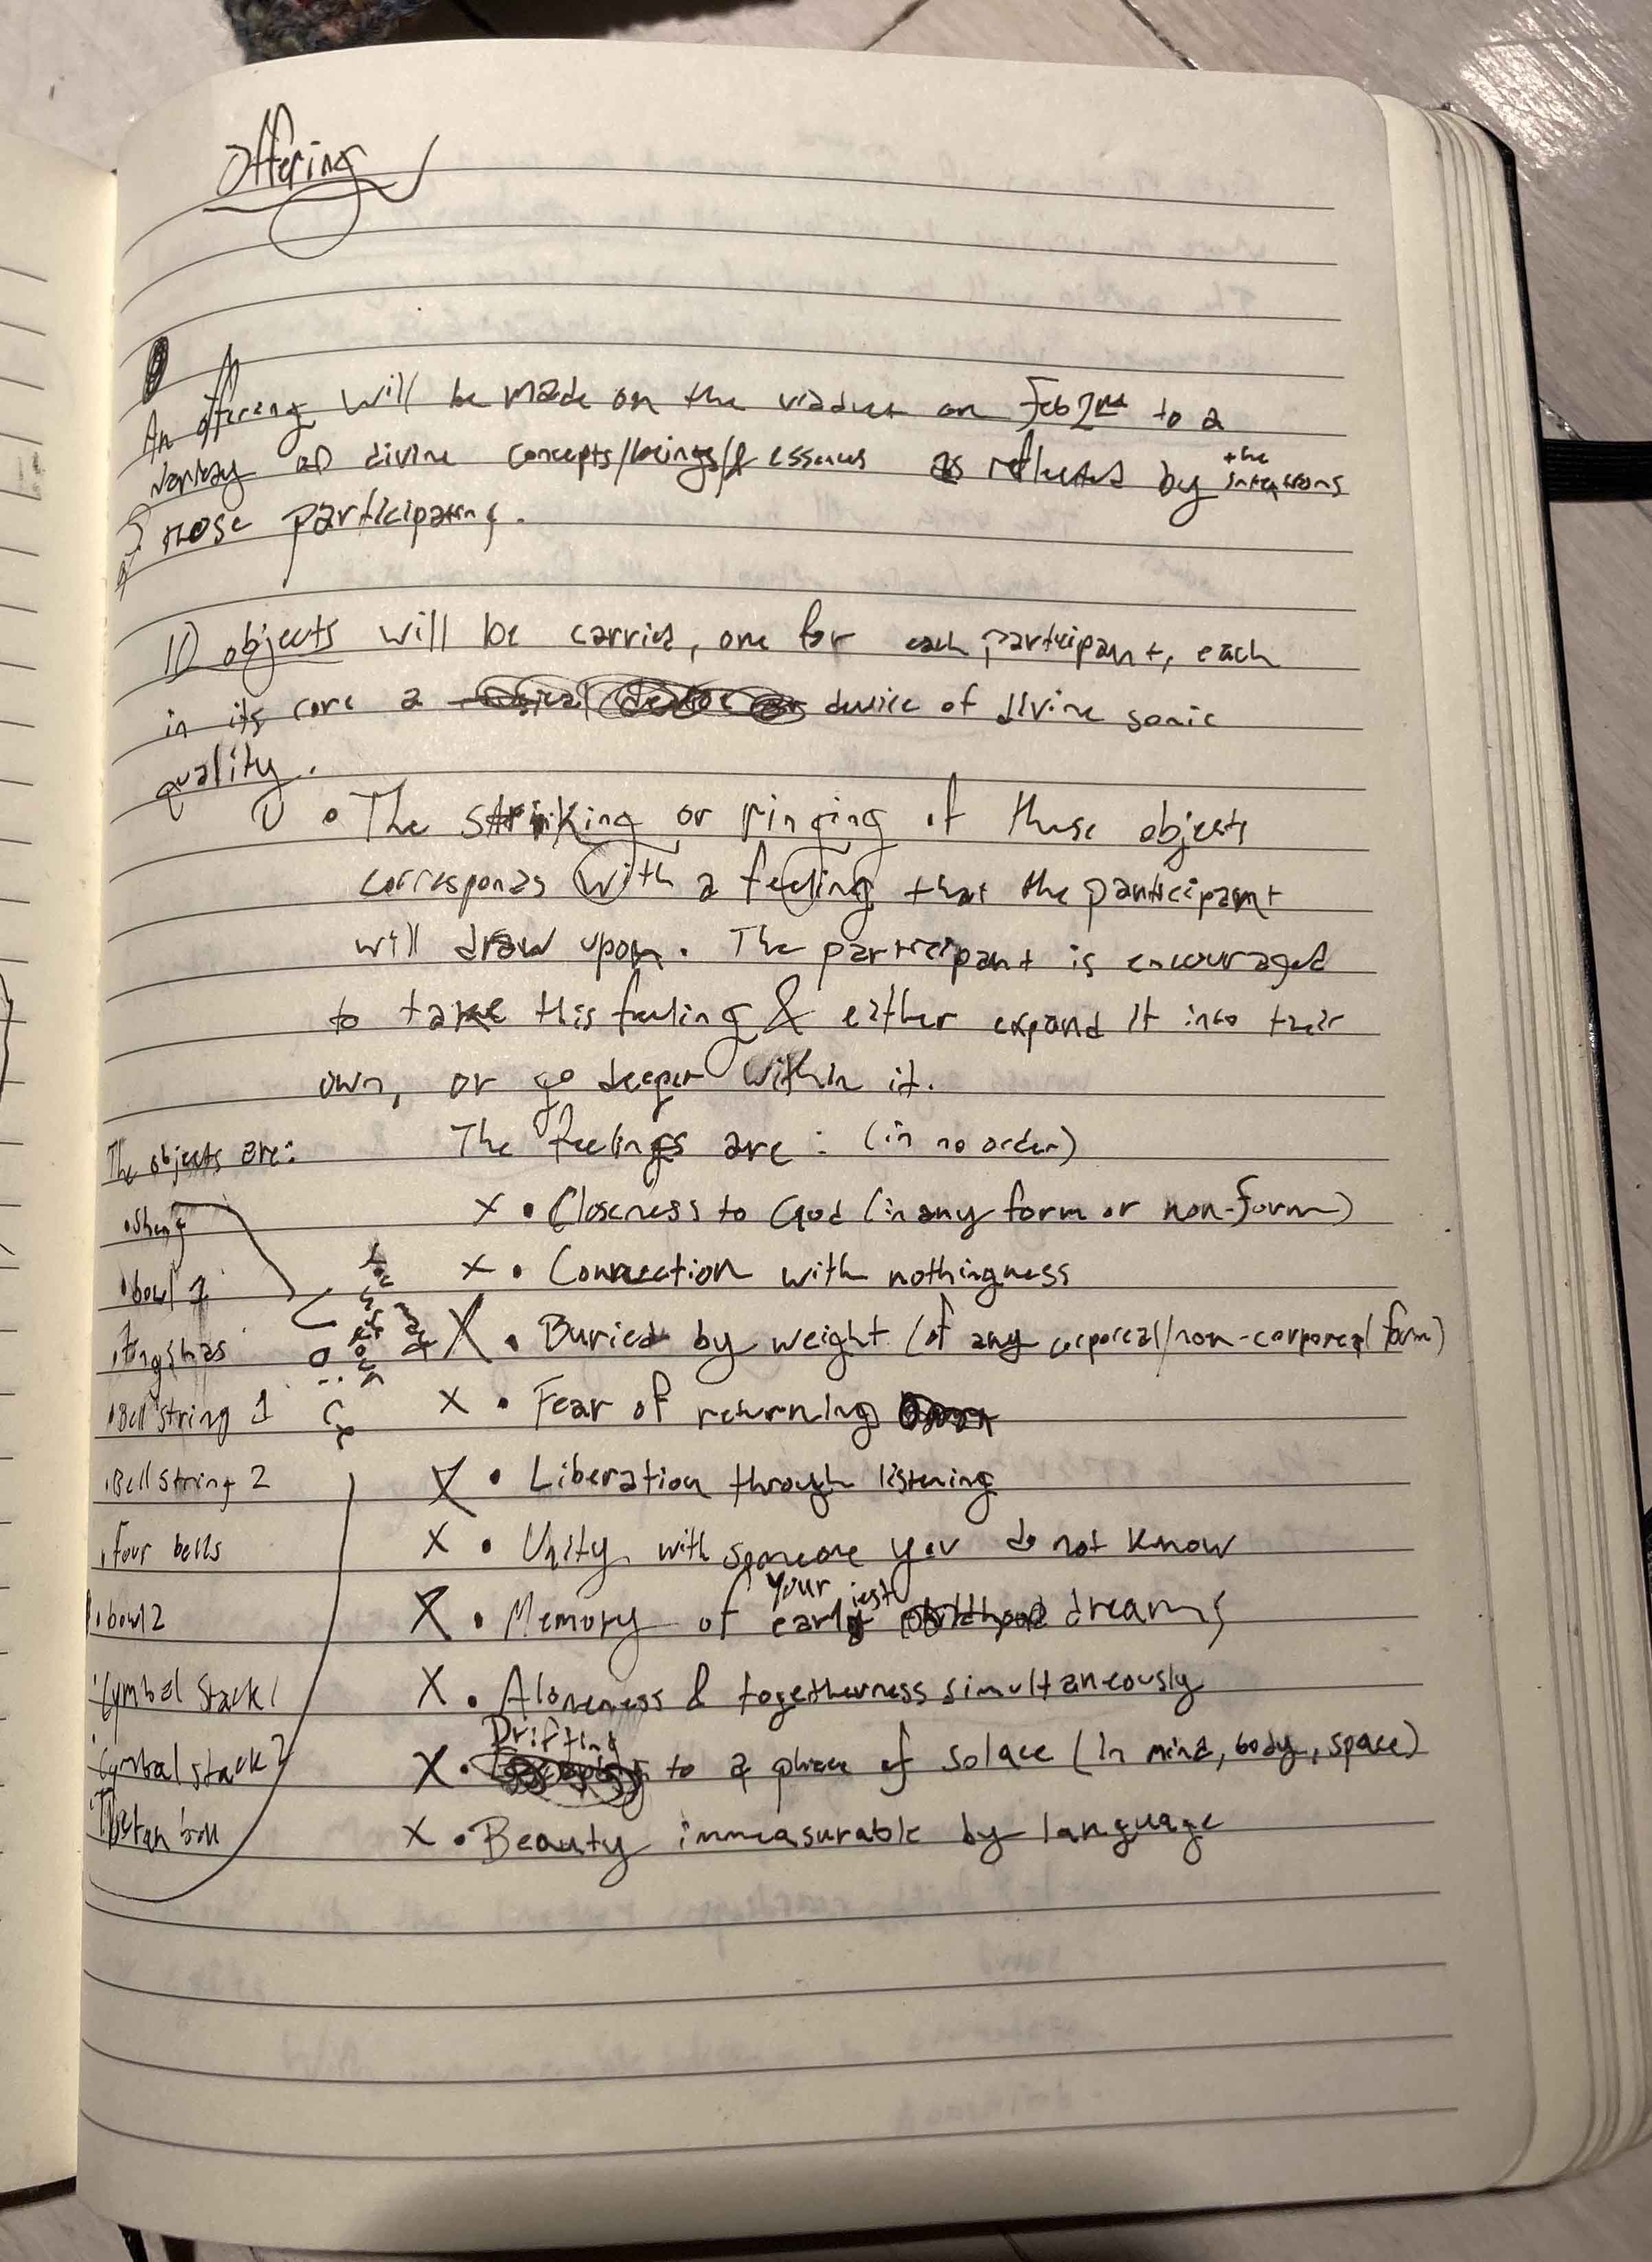 Offering
An offering will be made on the viaduct on Feb 2nd to a
variety of divine concepts/beings/& essences as reflected by the intentions
of those participating.
10 objects will be carried, one for each participant, each
in its core a device of divine sonic
quality.
• The striking or ringing of these objects
corresponds with a feeling that the participant
will draw upon. The participant is encouraged
to take this feeling & either expand it into their
own, or go deeper within it.
The feelings are: (in no order)
x • Closeness to God (in any form or non-form)
x • Connection with nothingness
X • Buried by weight (of any corporeal/non-corporeal form)
x • Fear of returning
X • Liberation through listening
X • Unity with someone you do not know
X • Memory of your earliest dreams
X • Aloneness & togetherness simultaneously
X • Drifting to a place of solace (in mind, body, space)
x • Beauty immeasurable by language
The objects are:
• Sheng
• bowl 1
• tingshas
• Bell string 1
• Bell string 2
• four bells
• bowl 2
• Cymbal stack 1
• Cymbal stack 2
• Tibetan bell